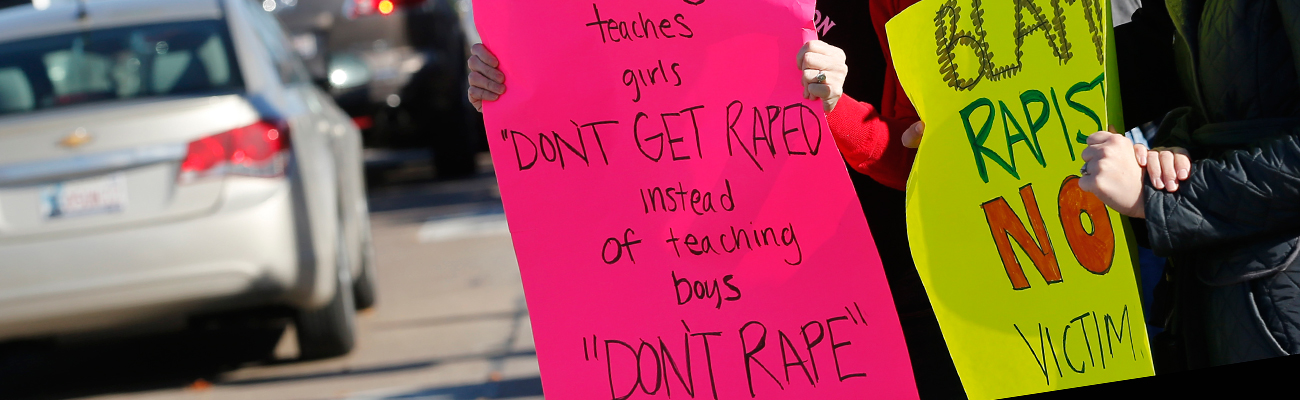 teaches
girls
"DON'T GET RAPED
instead
of teaching
boys
"DON'T RAPE"
BLAM
RAPIST
NO
VICTIM.